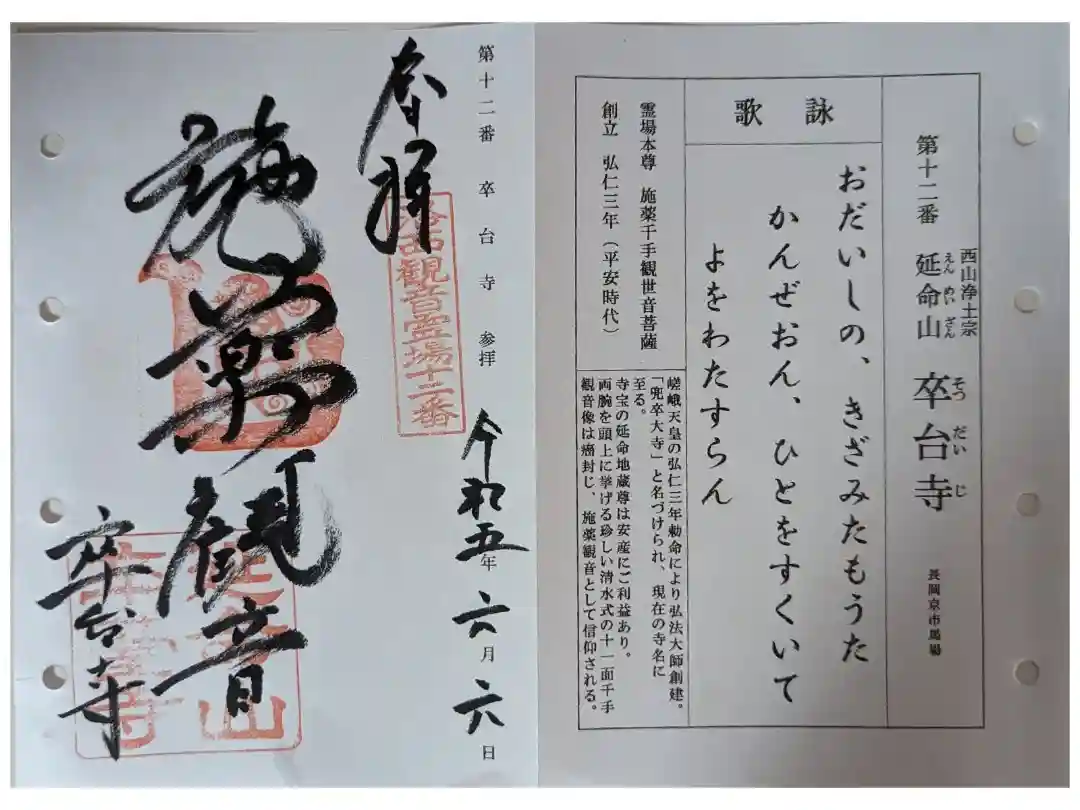 第十二番 延命山 卒台寺
えんめいざん
そつだいじ
西山浄土宗
長岡京市馬場
詠歌
おだいしの、きざみたもうた
かんぜおん、ひとをすくいて
よをわたすらん
霊場本尊 施薬千手観世音菩薩
創立 弘仁三年（平安時代）
嵯峨天皇の弘仁三年勅命により弘法大師創建。
「兜卒大寺」と名づけられ、現在の寺名に
至る。
寺宝の延命地蔵尊は安産にご利益あり。
両腕を頭上に挙げる珍しい清水式の十一面千手
観音像は癌封じ、施薬観音として信仰される。
第十二番 卒台寺 参拝 令和五年 六月 六日
奉拝
洛西観音霊場十二番
施薬観音
卒台寺